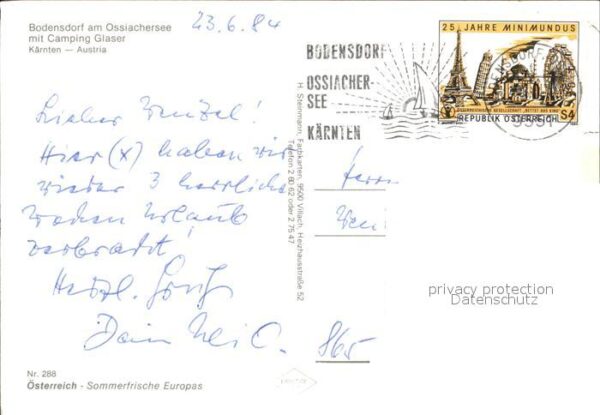 Bodensdorf am Ossiachersee
mit Camping Glaser
Kärnten — Austria
23.6.84
25 JAHRE MINIMUNDUS
ÖSTERREICHISCHE GESELLSCHAFT „RETTET DAS KIND“
REPUBLIK ÖSTERREICH S4
BODENSDORF
OSSIACHER-
SEE
KÄRNTEN
9551
Lieber Wenzel!
Hier (x) haben wir
wieder 3 herrliche
Wochen Urlaub
verbracht!
Herzl.
Dein
Herrn
865
H. Steinmann, Farbkarten, 9500 Villach, Heizhausstraße 52
Telefon 2 80 62 oder 2 75 47
privacy protection
Datenschutz
Nr. 288
Österreich - Sommerfrische Europas